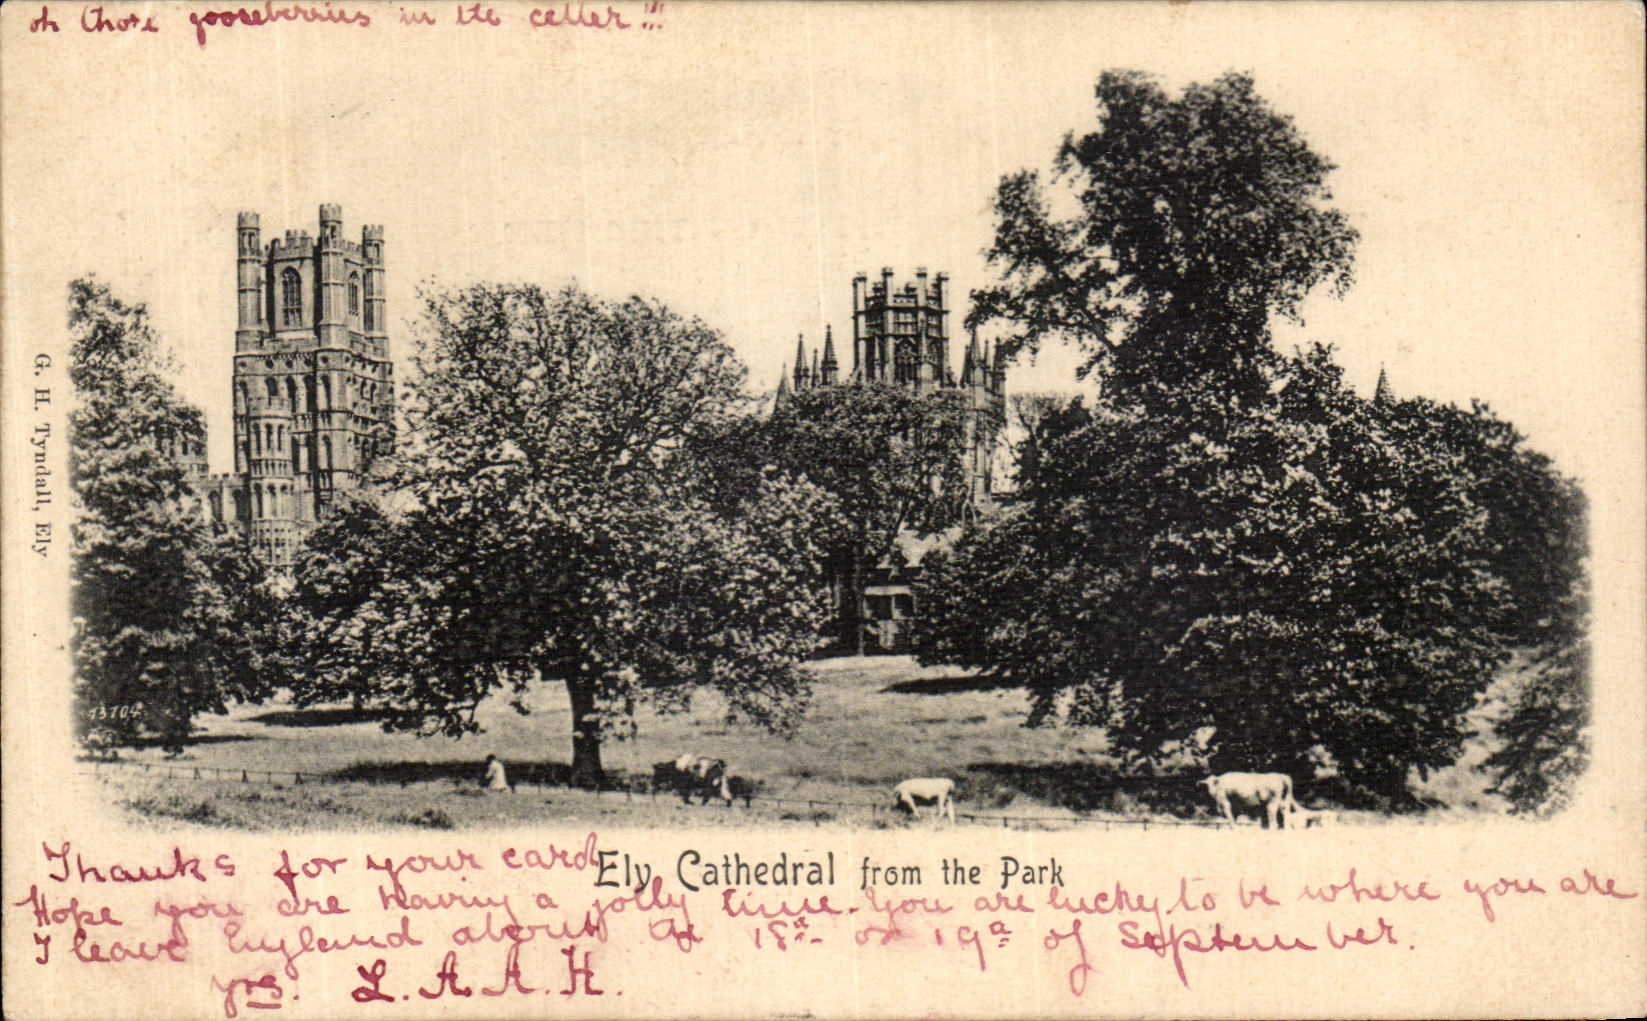 oh those gooseberries in the celler!!!
G. H. Tyndall, Ely
13704.
Ely Cathedral from the Park
Thanks for your card
Hope you are having a jolly time. You are lucky to be where you are
I leave England about 18th or 19th of September.
yrs. L. A. A. H.